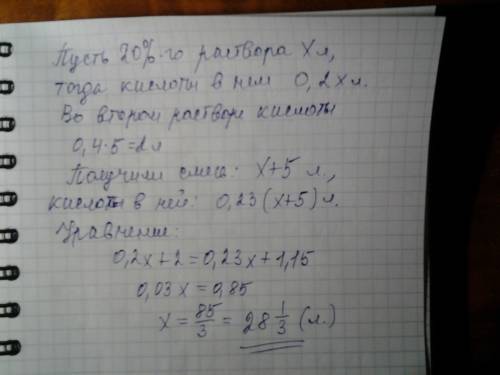 Пусть 20%-го раствора x л,
тогда кислоты в нем 0,2x л.
Во втором растворе кислоты
0,4·5=2л
Получили смесь: x+5 л.,
кислоты в ней: 0,23(x+5) л.
Уравнение:
0,2x+2=0,23x+1,15
0,03x=0,85
x=85/3=28 1/3 (л.)